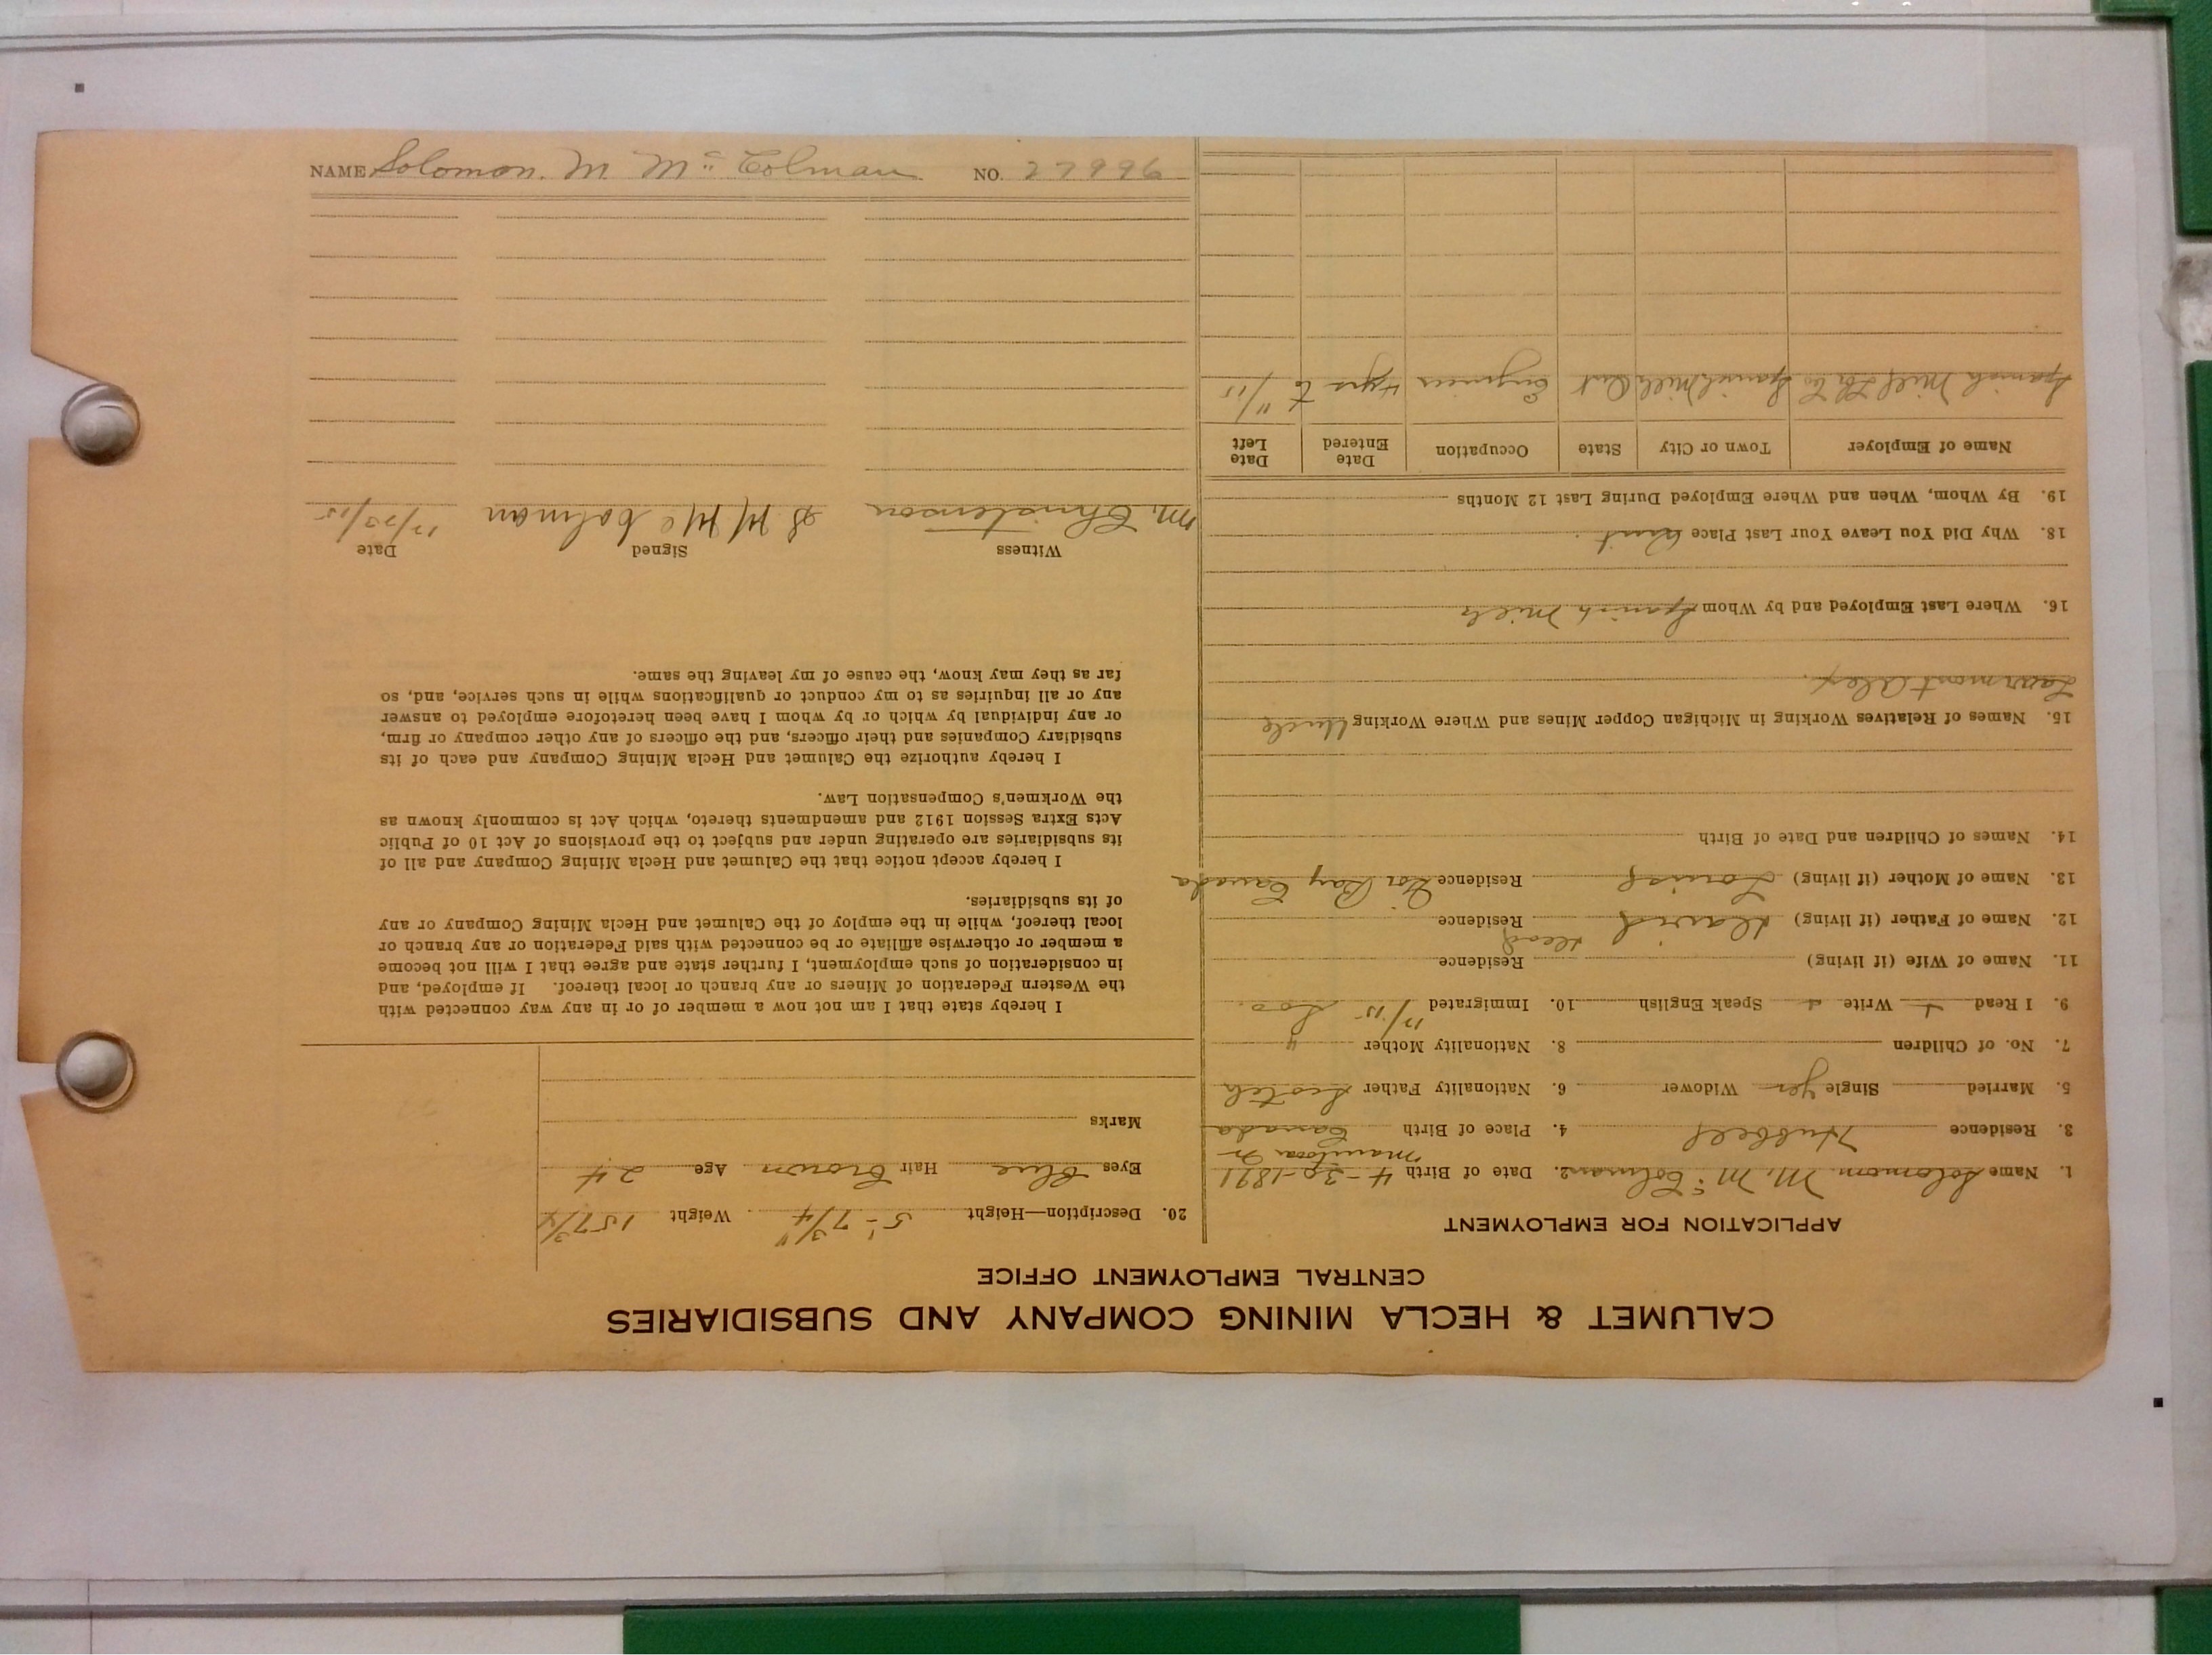 CALUMET & HECLA MINING COMPANY AND SUBSIDIARIES
CENTRAL EMPLOYMENT OFFICE
APPLICATION FOR EMPLOYMENT
1. Name Solomon M. Mc Colman 2. Date of Birth 4-30-1891
3. Residence Hubbell 4. Place of Birth Manitowa Is Canada
5. Married Single Yes Widower 6. Nationality Father Scotch
7. No. of Children 8. Nationality Mother "
9. I Read + Write + Speak English 10. Immigrated 12/15 Soo.
11. Name of Wife (if living) Residence
12. Name of Father (if living) David Residence Dead
13. Name of Mother (if living) Louise Residence Bay Canada
14. Names of Children and Date of Birth
15. Names of Relatives Working in Michigan Copper Mines and Where Working Uncle
Alex.
16. Where Last Employed and by Whom Spanish Mills
18. Why Did You Leave Your Last Place Quit.
19. By Whom, When and Where Employed During Last 12 Months
Name of Employer Town or City State Occupation Date Entered Date Left
Spanish Mill Co Spanish Mills Ont Engineer 4 yrs to 11/15
20. Description—Height 5'-7 3/4" Weight 157 3/4
Eyes Blue Hair Brown Age 24
Marks
I hereby state that I am not now a member of or in any way connected with
the Western Federation of Miners or any branch or local thereof. If employed, and
in consideration of such employment, I further state and agree that I will not become
a member or otherwise affiliate or be connected with said Federation or any branch or
local thereof, while in the employ of the Calumet and Hecla Mining Company or any
of its subsidiaries.
I hereby accept notice that the Calumet and Hecla Mining Company and all of
its subsidiaries are operating under and subject to the provisions of Act 10 of Public
Acts Extra Session 1912 and amendments thereto, which Act is commonly known as
the Workmen's Compensation Law.
I hereby authorize the Calumet and Hecla Mining Company and each of its
subsidiary Companies and their officers, and the officers of any other company or firm,
or any individual by which or by whom I have been heretofore employed to answer
any or all inquiries as to my conduct or qualifications while in such service, and, so
far as they may know, the cause of my leaving the same.
Witness Signed Date
M. Christenson S M Mc Colman 12/23/15
NAME Solomon. M. Mc Colman NO. 27996